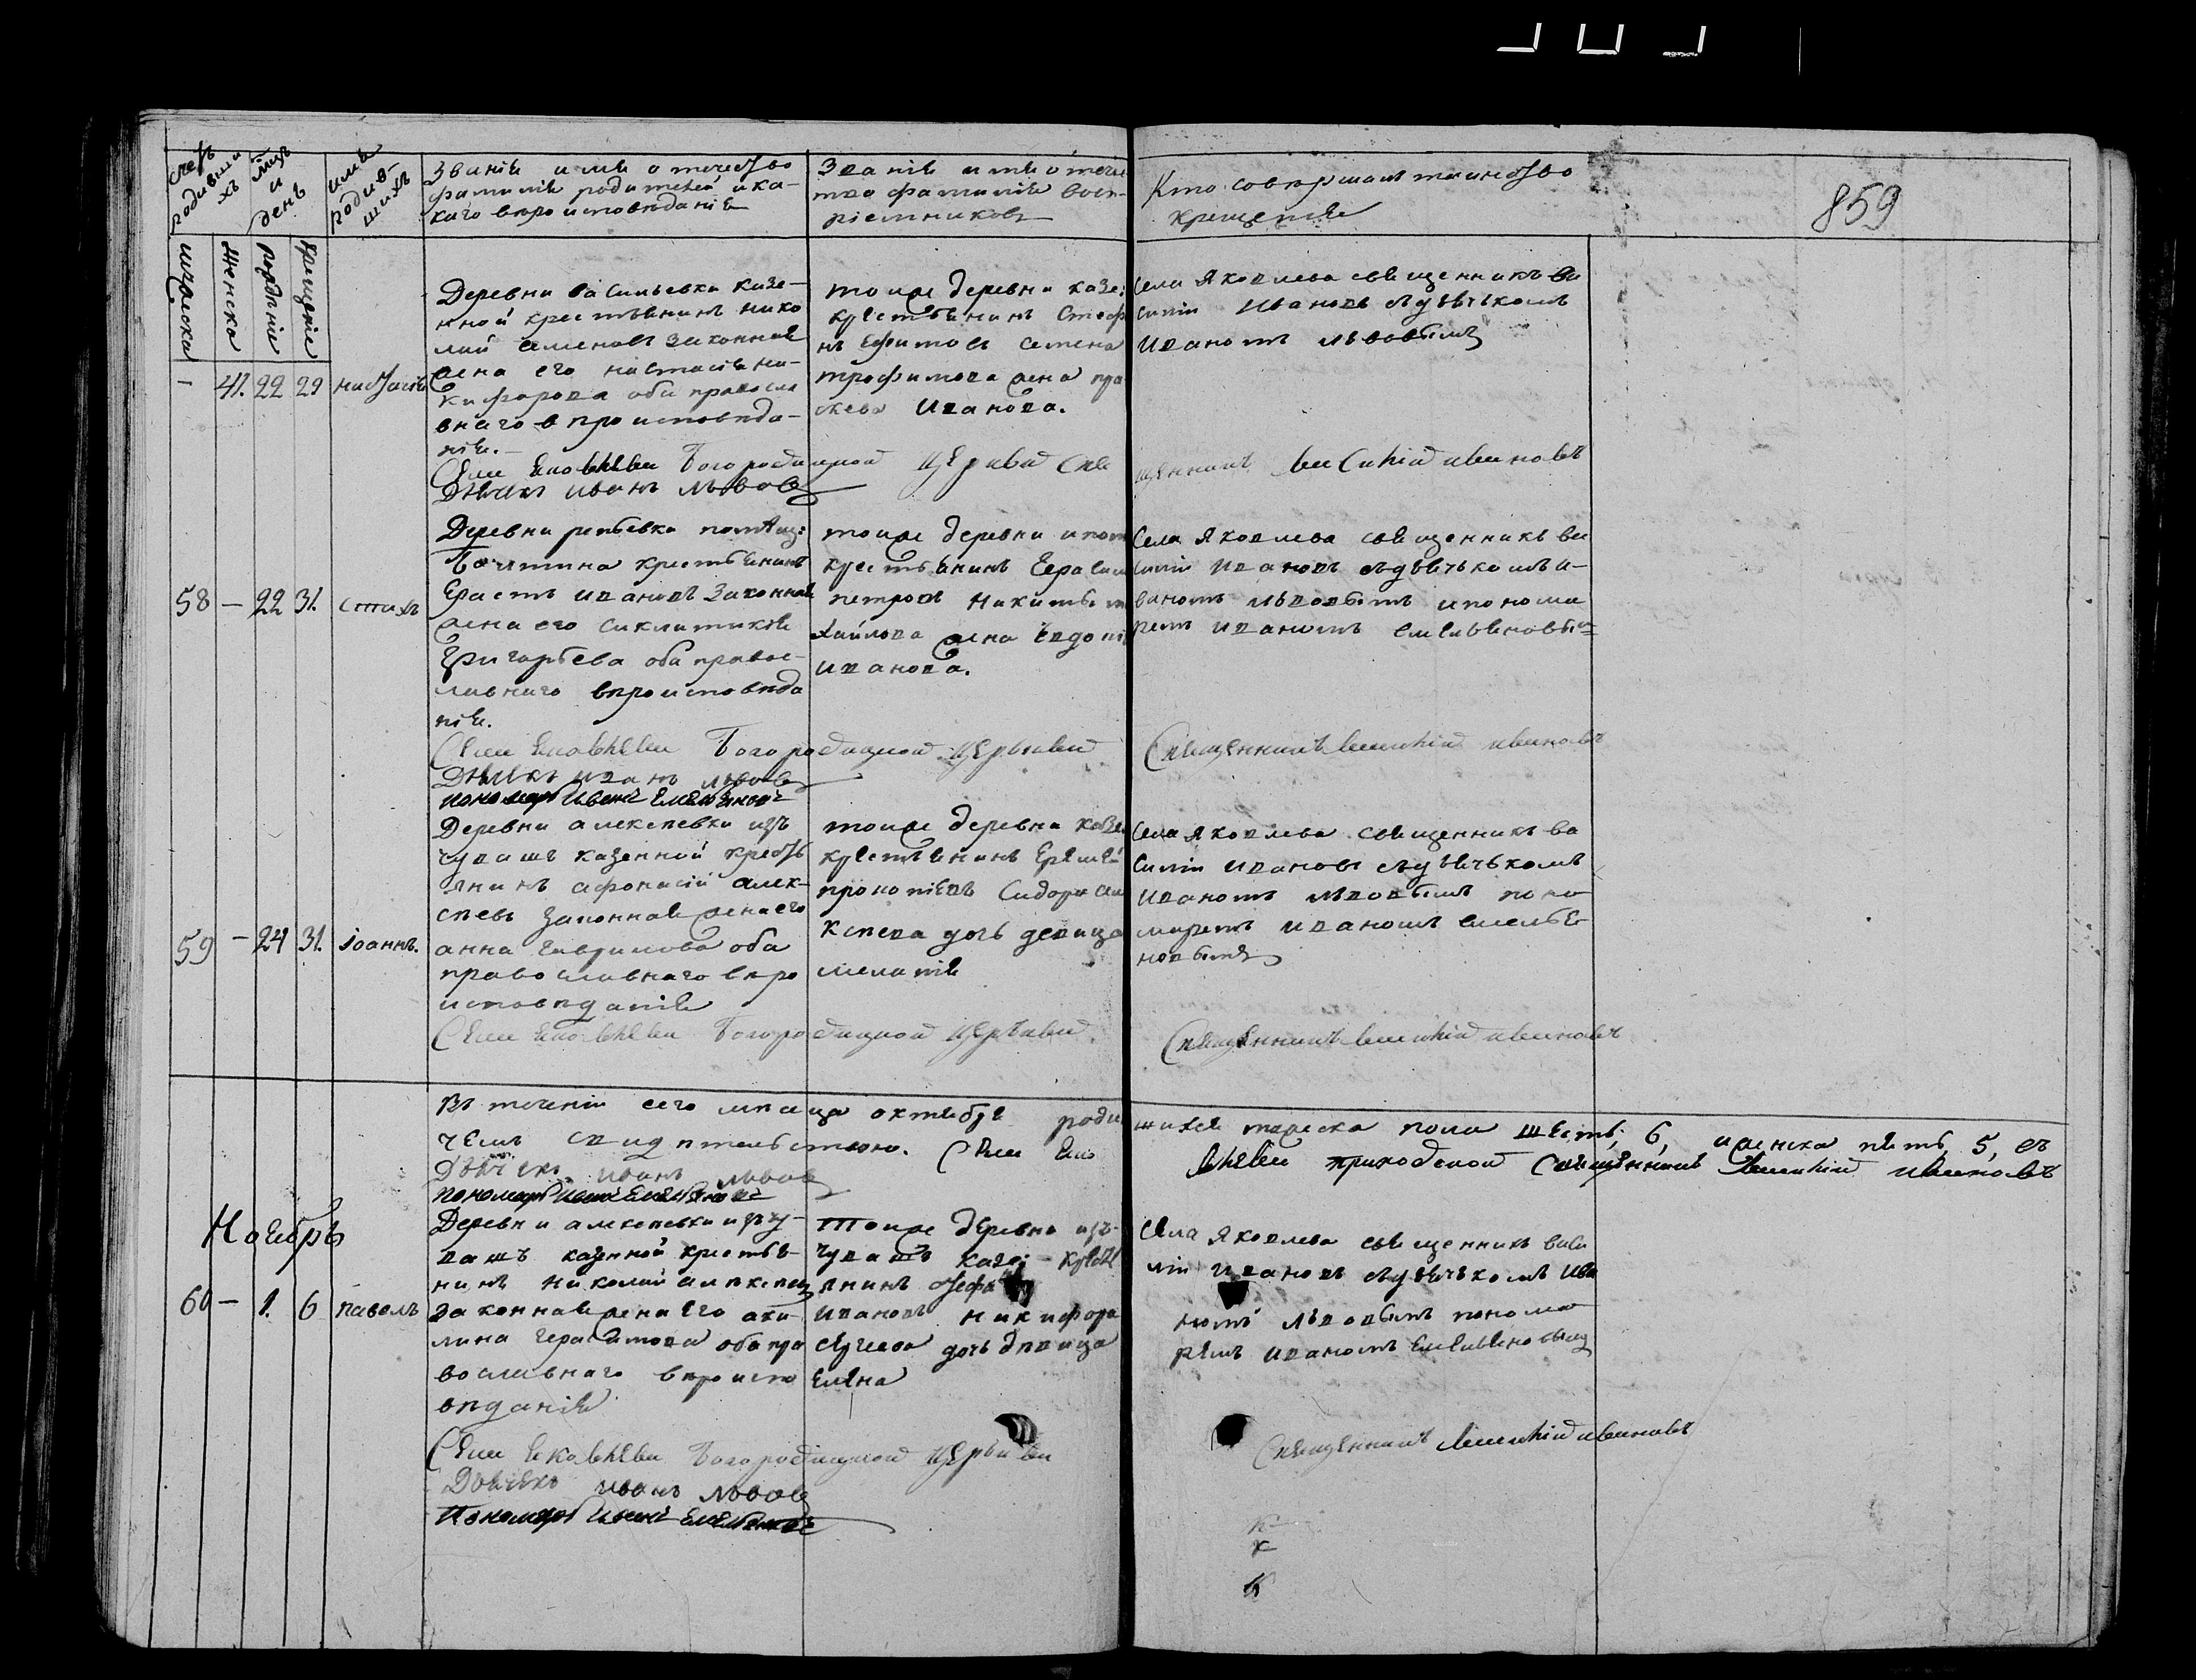 859
счетъ родившихъ
мцъ и день
имя родившихъ
Званіе имя отечество
фамилія родителей и ка-
каго вероисповеданія
Званіе имя отече
тво фамилія восп-
ріемниковъ
Кто совершалъ таинство
крещенія
мужеска
женска
рожденіе
крещеніе
- 41. 22 29 настасія
Деревни Васильевки казе-
нной крестьянинъ нико
лай семеновъ законная
жена его настасія ни-
кифорова оба правосла
внаго вероисповеда-
нія.
тоиже деревни казе:
крестьянинъ Стеф
нъ Ефимовъ семена
трофимова жена пра
сковья Иванова.
Села Яковлева священникъ ва
силій Ивановъ съ дьячкомъ
Иваномъ Львовымъ
Села Яковлева Богородицкой церкви свя
щенникъ Василій Ивановъ
Дьячекъ Иванъ Львовъ
58 - 22 31.
Деревни репьевки помещ:
крестьянинъ
Ерастъ Ивановъ законная
жена его
Григорьева оба правос-
лавнаго вероисповеда
нія.
тоиже деревни и пом
крестьянинъ Герасим
петровъ Никиты м
хайлова жена Евдокі
Иванова.
Села Яковлева священникъ ва
силій Ивановъ съ дьячькомъ и-
ваномъ Львовымъ и понома
ремъ Иваномъ Емельяновым
Села Яковлева Богородицкой церкви
Священникъ Василій Ивановъ
Дьячекъ Иванъ Львовъ
пономарь Иванъ Емельяновъ
59 - 24 31. Іоаннъ.
Деревни алексеевки изъ
чувашъ казенной кресть
янинъ афонасій алек-
сеевъ законная жена его
анна гаврилова оба
православнаго веро
исповеданія
тоиже деревни казе
крестьянинъ Еремей
прокопіевъ Сидора але
ксеева дочь девица
меланія
Села Яковлева священникъ ва
силій Ивановъ съ дьячькомъ
Иваномъ Львовымъ поно
маремъ Иваномъ Емелья
новымъ
Села Яковлева Богородицкой церкви
Священникъ Василій Ивановъ
Въ теченіи сего месяца октября роди
вшихся мужеска пола шесть, 6, женска пять, 5, въ
чемъ свидетельствую. Села Яко
влева приходской священникъ Василій Ивановъ
Дьячекъ Иванъ Львовъ
пономарь Иванъ Емельяновъ
Ноябрь
60 - 1. 6 павелъ
Деревни алексеевки изъ чу-
вашъ казенной крестья-
нинъ Николай алексеевъ
законная жена его аки-
лина герасимова оба пра
вославнаго вероиспо
веданія
Тоиже деревни изъ
чувашъ казе: кресть
янинъ
Ивановъ Никифора
сергеева дочь девица
Елена
Села Яковлева священникъ васи
лій Ивановъ съ дьячькомъ Ива
номъ Львовымъ понома
ремъ Иваномъ Емельяновым
Села Яковлева Богородицкой церкви
Священникъ Василій Ивановъ
Дьячекъ Иванъ Львовъ
Пономарь Иванъ Емельяновъ